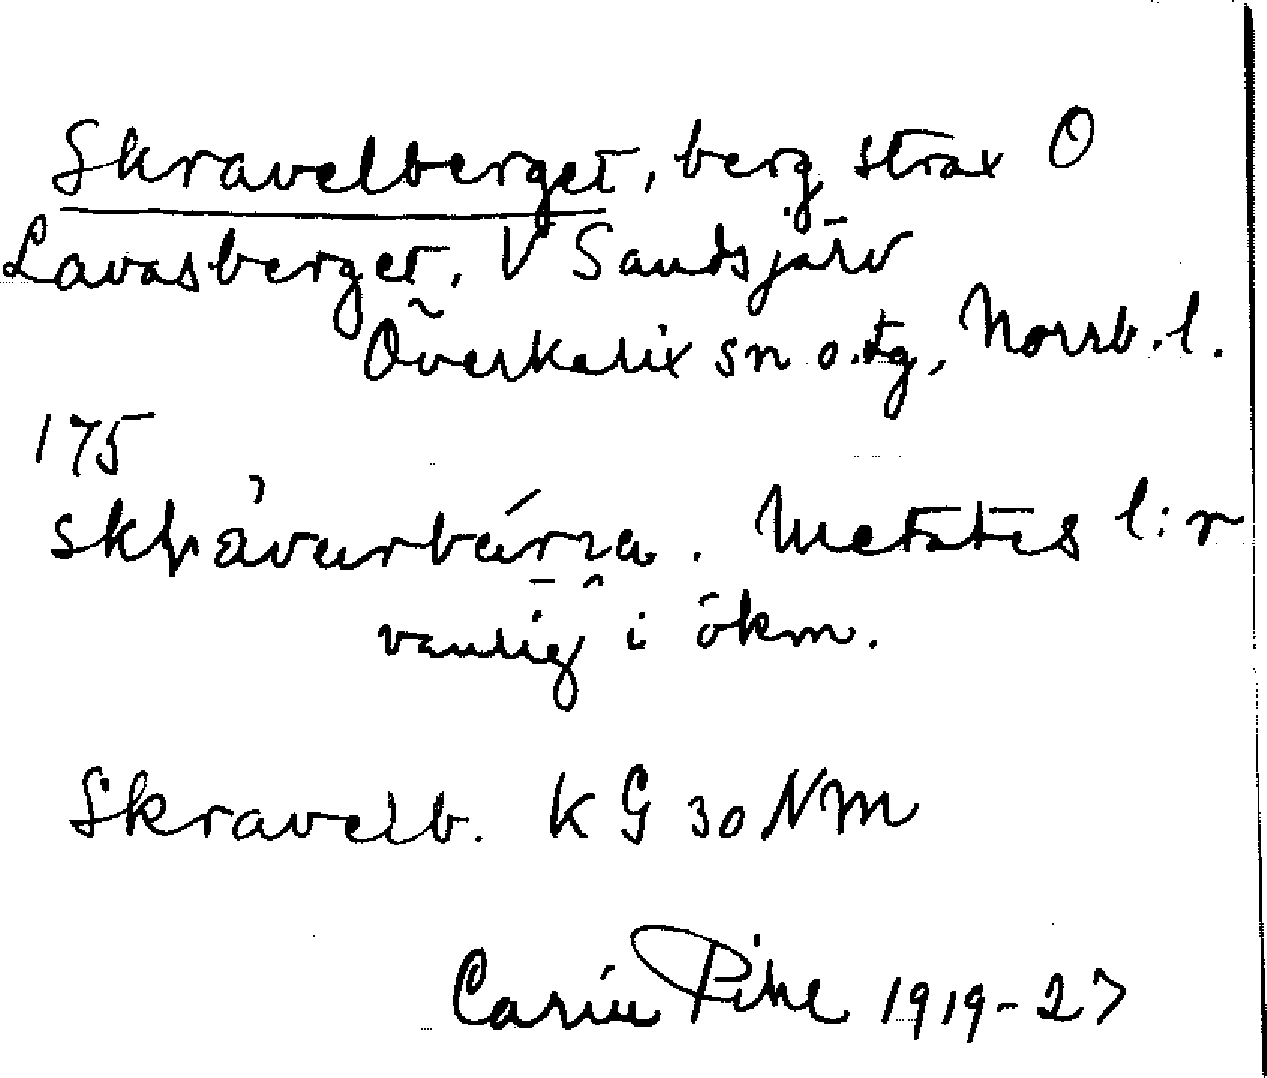 Skravelberget, berg strax O
Lavasberget, V Sandsjärv
Överkalix sn o. tg, Norrb. l.
175
Metates l:r
vanlig i ökm.
Skravelb. KG 30 NM
Carin Pihl 1919-27